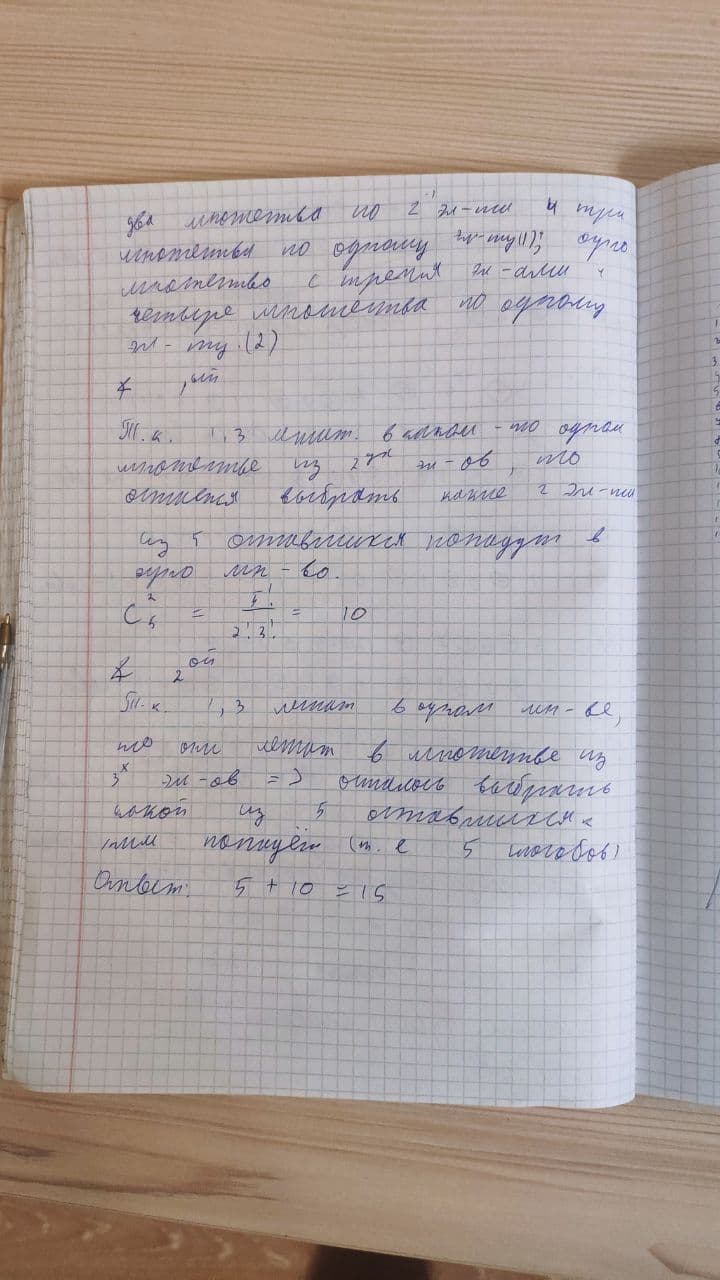 два множества по 2 эл-та и три
множества по одному эл-ту(1); одно
множество с тремя эл-ами и
четыре множества по одному
эл-ту.(2)
1ый
Т.к. 1,3 лежат в каком-то одном
множестве из 2ух эл-ов, то
остается выбрать какие 2 эл-та
из 5 оставшихся попадут в
одно мн-во.
C₅² = 5!/2!3! = 10
2ой
Т.к. 1,3 лежат в одном мн-ве,
то они лежат в множестве из
3х эл-ов => осталось выбрать
какой из 5 оставшихся к
ним попадёт (т.е 5 способов)
Ответ: 5 + 10 = 15